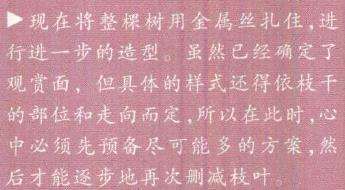 ▶现在将整棵树用金属丝扎住,进
行进一步的造型。虽然已经确定了
观赏面,但具体的样式还得依枝干
的部位和走向而定,所以在此时,心
中必须先预备尽可能多的方案,然
后才能逐步地再次删减枝叶。